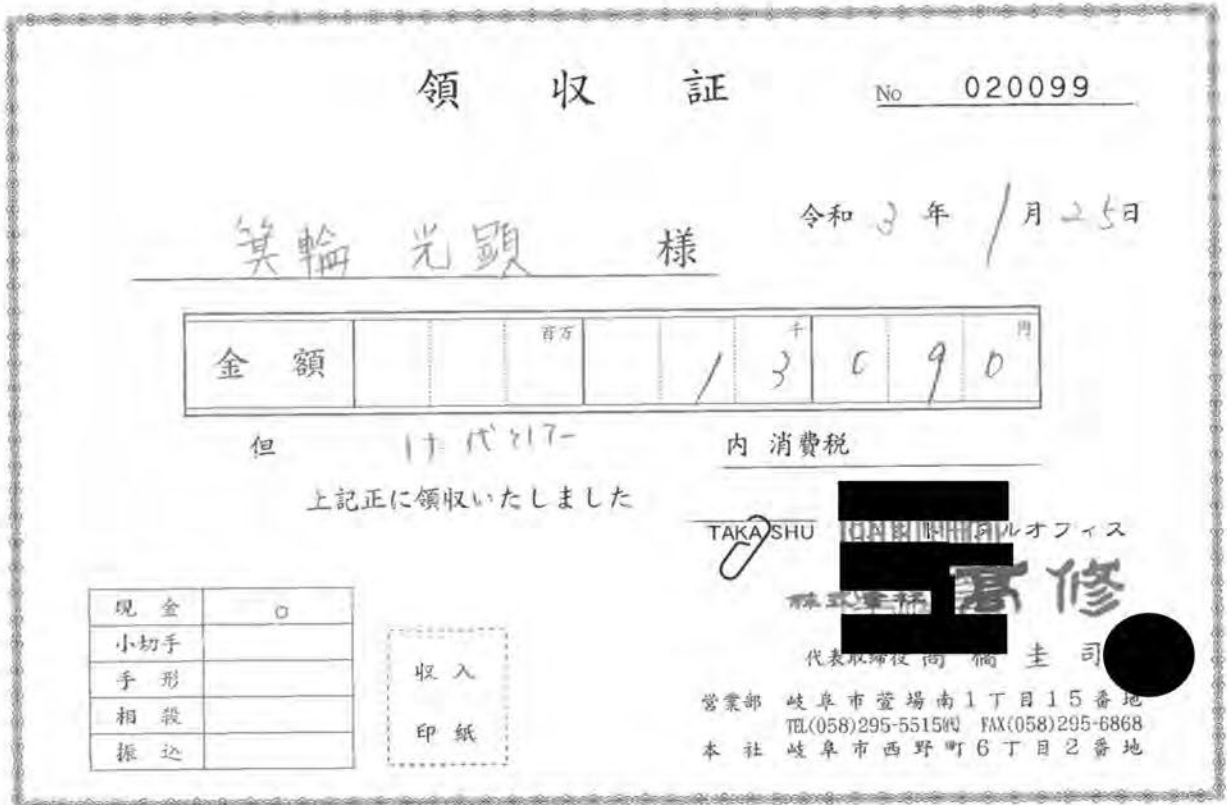 領収証
No 020099
令和 3 年 1 月 25日
箕輪 光顕 様
金額 百万 千 円
1 3 0 9 0
但
内 消費税
上記正に領収いたしました
TAKASHU オフィス
株式会社 髙修
代表取締役 髙橋圭司
営業部 岐阜市萱場南1丁目15番地
TEL(058)295-5515㈹ FAX(058)295-6868
本社 岐阜市西野町6丁目2番地
現金 ○
小切手
手形
相殺
振込
収入
印紙